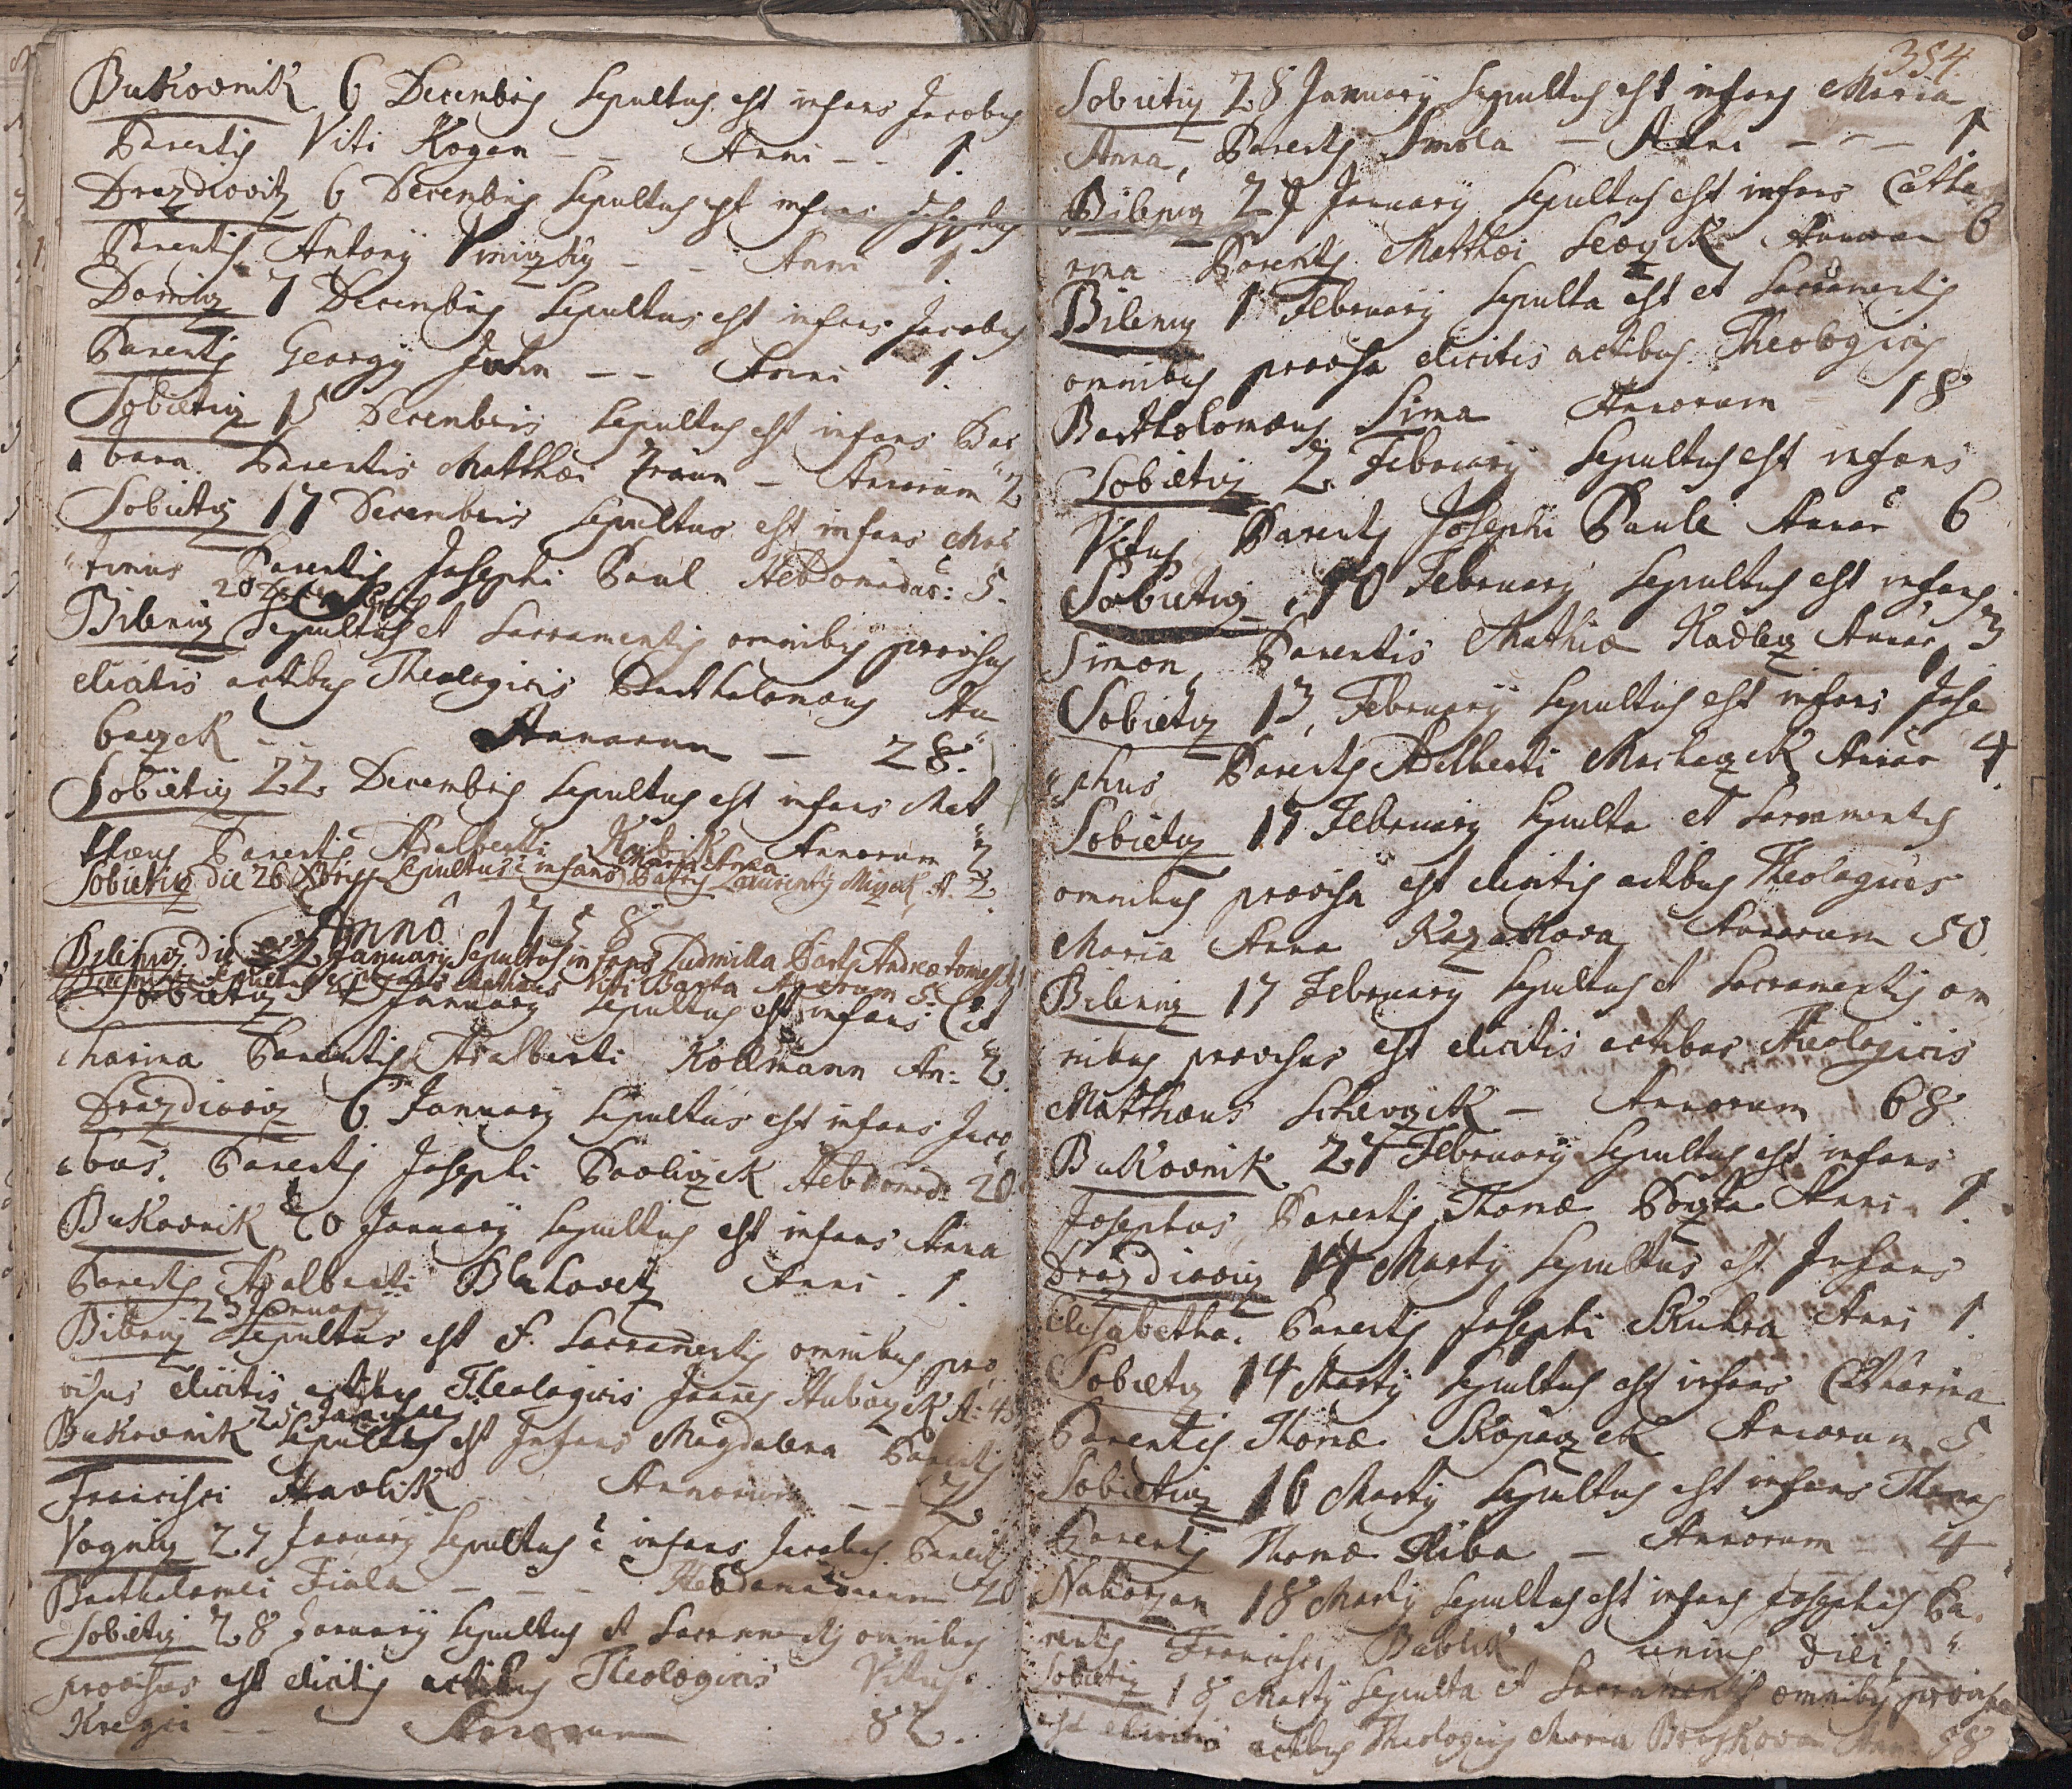 Bukovnik 6 Decembris Sepultus est infans Jacobus
Parentis Viti Kogan -- Anni -- 1.
Drazdiovitz 6 Decembris Sepultus est infans Josephus
Parentis Antonij -- Anni 1
7 Decembris Sepultus est infans Jacobus
Parentis Georgij Jahn -- Anni 1.
Sobietitz 15 Decembris Sepultus est infans Bar
bara Parentis Matthæi - Annorum 2
Sobietitz 17 Decembris Sepultus est infans Mar
tinus Parentis Josephi Paul Hebdomadas: 5.
20 Decembris
Bilenitz Sepultus et Sacramentis omnibus provisus
elicitis actibus Theologicis Bartholomæus Hu
baczek -- Annorum - 28.
Sobietitz 22 Decembris Sepultus est infans Mat
thæus Parentis Adalberti Kubik Annorum 2
Maria Anna
Sobietitz die 26 Xbris Sepultus ẽ infans Patris Laurentij Mizak, A. 2.
Anno 1758
Bilenitz die 2 Januarij Sepultus infans Ludmilla Partis Andreæ
infans Mathæus Viti Barta Annorum 5.
Sobietitz 4 Januarij Sepultus est infans Cat
harina Parentis Adalberti Kollmann An: 2.
Drazdiovitz 6 Januarij Sepultus est infans Jaco
bus. Parentis Josephi Pavliczek Hebdomad: 20
Bukovnik 20 Januarij Sepultus est infans Anna
Parentis Adalberti Blahovetz Anni. 1.
23 Januarij
Bilenitz Sepultus est S. Sacramentis omnibus pro
visus elicitis actibus Theologicis Joannes Hubaczek A: 45
25 Januarij
Bukovnik Sepultus est Infans Magdalena Parentis
Francisci Havlik Annorum -- 2
27 Januarij Sepultus ẽ infans Jacobus Parentis
Bartholomei Fiala - - - Hebdomadarum 20
Sobietitz 28 Januarij Sepultus et Sacramentis omnibus
provisus est elicitis actibus Theologicis Vitus
Kregci -- Annorum 82.
354.
Sobietitz 28 Januarij Sepultus est infans Maria
Anna, Parentis Smola - Anni - - - 1.
Bilenitz 29 Januarij Sepultus est infans Catha
rina Parentis Matthæi Annorum 6
Bilenitz 1 Februarij Sepulta est et Sacramentis
omnibus provisa elicitis actibus Theologicis
Bartholomæus Sima Annorum 18
Sobietitz 2 Februarij Sepultus est infans
Vitus Parentis Josephi Paule Annor 6
Sobietitz 10 Februarij Sepultus est infans
Simon, Parentis Mathiæ Kadletz Annor 3
Sobietitz 13, Februarij Sepultus est infans Jose
phus Parentis Adelberti Machaczek Annor 4.
Sobietitz 17 Februarij Sepulta et Sacramentis
omnibus provisa est elicitis actibus Theologicis
Maria Anna Kozakova Annorum 50.
Bilenitz 17 Februarij Sepultus et Sacramentis om
nibus provisus est elicitis actibus Theologicis
Matthæus - Annorum 68
Bukovnik 27 Februarij Sepultus est infans
Josephus, Parentis Thomæ Anni 1.
Drazdiovitz 14 Martij Sepultus est Infans
Elisabetha. Parentis Josephi Skuhra Anni 1.
Sobietitz 14 Martij Sepultus est infans Catharina
Parentis Thomæ Skopaczek Annorum 5
Sobietitz 16 Martij Sepultus est infans Thomas
Parentis Thomæ Hliba - Annorum 4
18 Martij Sepultus est infans Josephus Pa
rentis Francisci Bublik unius diei.
Sobietitz 18 Martij Sepulta et Sacramentis omnibus provisa
est elicitis actibus Theologicis Maria 58